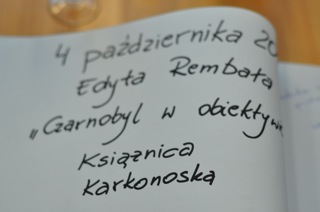 4 października 20
Edyta Rembała
„Czarnobyl w obiektywie
Książnica
Karkonoska